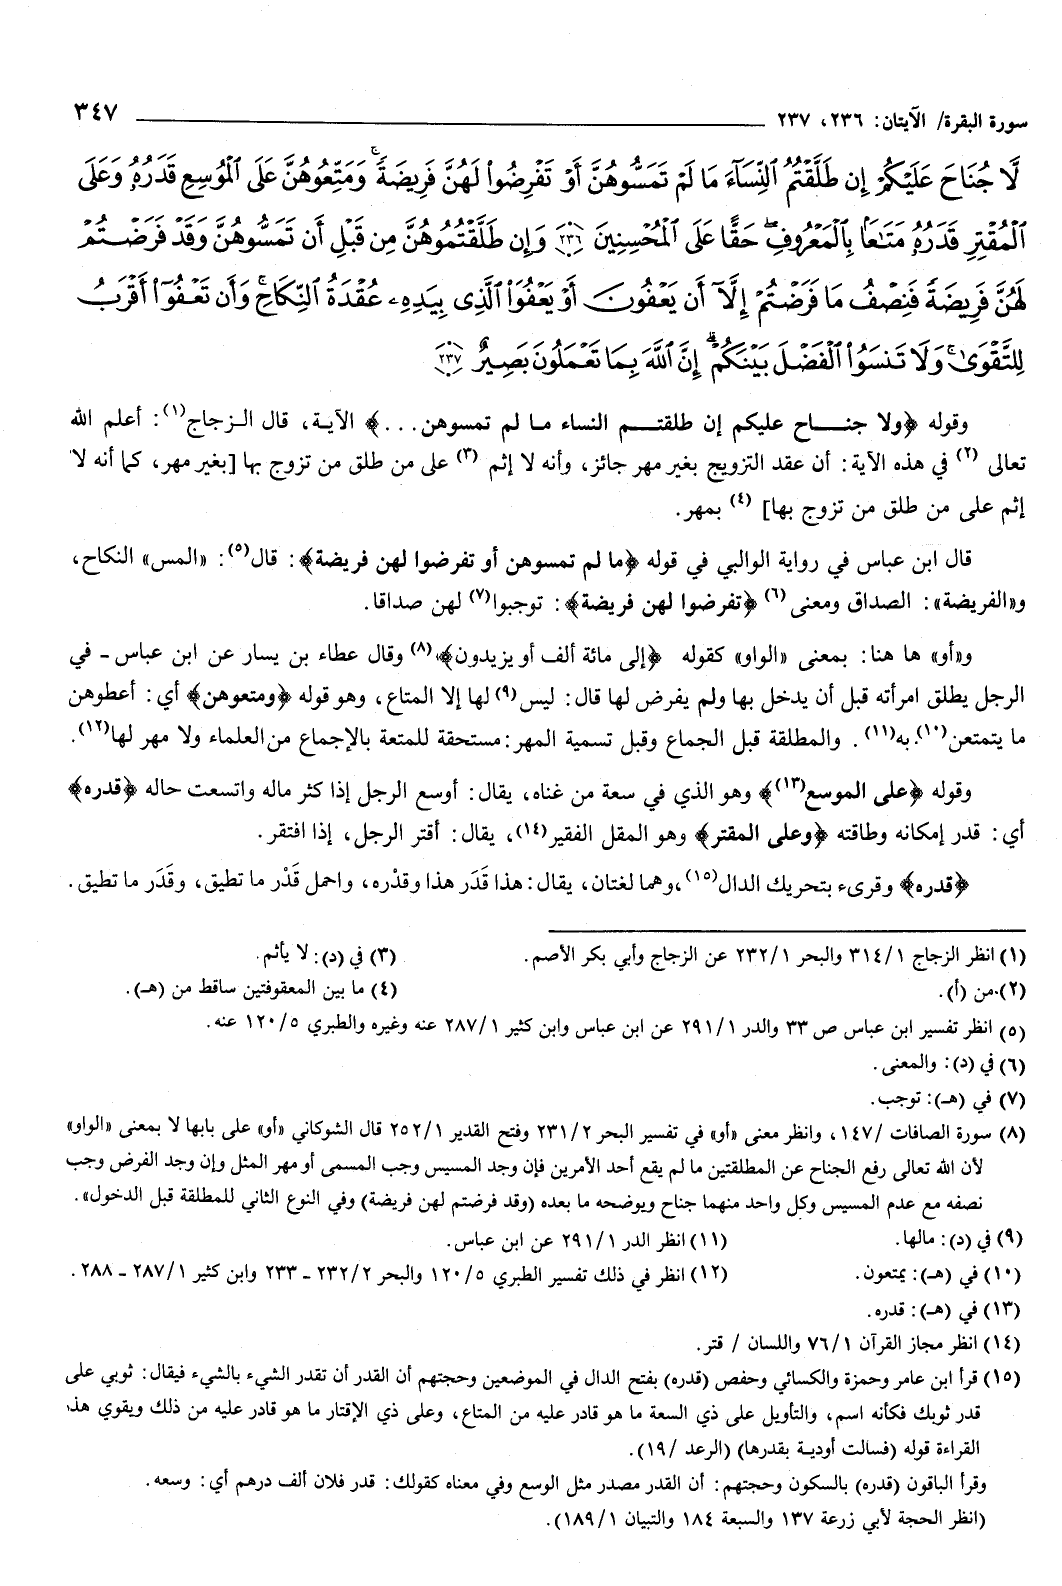 سورة البقرة/ الآيتان: ٢٣٦، ٢٣٧ ٣٤٧
لَّا جُنَاحَ عَلَيْكُمْ إِن طَلَّقْتُمُ ٱلنِّسَآءَ مَا لَمْ تَمَسُّوهُنَّ أَوْ تَفْرِضُوا۟ لَهُنَّ فَرِيضَةً ۚ وَمَتِّعُوهُنَّ عَلَى ٱلْمُوسِعِ قَدَرُهُۥ وَعَلَى
ٱلْمُقْتِرِ قَدَرُهُۥ مَتَـٰعًۢا بِٱلْمَعْرُوفِ ۖ حَقًّا عَلَى ٱلْمُحْسِنِينَ ﴿٢٣٦﴾ وَإِن طَلَّقْتُمُوهُنَّ مِن قَبْلِ أَن تَمَسُّوهُنَّ وَقَدْ فَرَضْتُمْ
لَهُنَّ فَرِيضَةً فَنِصْفُ مَا فَرَضْتُمْ إِلَّآ أَن يَعْفُونَ أَوْ يَعْفُوَا۟ ٱلَّذِى بِيَدِهِۦ عُقْدَةُ ٱلنِّكَاحِ ۚ وَأَن تَعْفُوٓا۟ أَقْرَبُ
لِلتَّقْوَىٰ ۚ وَلَا تَنسَوُا۟ ٱلْفَضْلَ بَيْنَكُمْ ۚ إِنَّ ٱللَّهَ بِمَا تَعْمَلُونَ بَصِيرٌ ﴿٢٣٧﴾
وقوله ﴿ولا جنـــاح عليكم إن طلقتـــم النساء مـا لم تمسوهن...﴾ الآيـة، قال الـزجاج(١): أعلم الله
تعالى (٢) في هذه الآية: أن عقد التزويج بغير مهر جائز، وأنه لا إثم (٣) على من طلق من تزوج بها [بغير مهر، كما أنه لا
إثم على من طلق من تزوج بها] (٤) بمهر.
قال ابن عباس في رواية الوالبي في قوله ﴿ما لم تمسوهن أو تفرضوا لهن فريضة﴾: قال(٥): «المس» النكاح،
و«الفريضة»: الصداق ومعنى (٦) ﴿تفرضوا لهن فريضة﴾: توجبوا(٧) لهن صداقا.
و«أو» ها هنا: بمعنى «الواو» كقوله ﴿إلى مائة ألف أو يزيدون﴾،(٨) وقال عطاء بن يسار عن ابن عباس - في
الرجل يطلق امرأته قبل أن يدخل بها ولم يفرض لها قال: ليس(٩) لها إلا المتاع، وهو قوله ﴿ومتعوهن﴾ أي: أعطوهن
ما يتمتعن(١٠) به(١١). والمطلقة قبل الجماع وقبل تسمية المهر: مستحقة للمتعة بالإجماع من العلماء ولا مهر لها(١٢).
وقوله ﴿على الموسع(١٣)﴾ وهو الذي في سعة من غناه، يقال: أوسع الرجل إذا كثر ماله واتسعت حاله ﴿قدره﴾
أي: قدر إمكانه وطاقته ﴿وعلى المقتر﴾ وهو المقل الفقير(١٤)، يقال: أقتر الرجل، إذا افتقر.
﴿قدره﴾ وقرىء بتحريك الدال(١٥)، وهما لغتان، يقال: هذا قَدَر هذا وقدْره، واحمل قَدْر ما تطيق، وقَدَر ما تطيق.
(١) انظر الزجاج ٣١٤/١ والبحر ٢٣٢/١ عن الزجاج وأبي بكر الأصم. (٣) في (د): لا يأثم.
(٢) من (أ). (٤) ما بين المعقوفتين ساقط من (هـ).
(٥) انظر تفسير ابن عباس ص ٣٣ والدر ٢٩١/١ عن ابن عباس وابن كثير ٢٨٧/١ عنه وغيره والطبري ١٢٠/٥ عنه.
(٦) في (د): والمعنى.
(٧) في (هـ): توجب.
(٨) سورة الصافات /١٤٧، وانظر معنى «أو» في تفسير البحر ٢٣١/٢ وفتح القدير ٢٥٢/١ قال الشوكاني «أو» على بابها لا بمعنى «الواو»
لأن الله تعالى رفع الجناح عن المطلقتين ما لم يقع أحد الأمرين فإن وجد المسيس وجب المسمى أو مهر المثل وإن وجد الفرض وجب
نصفه مع عدم المسيس وكل واحد منهما جناح ويوضحه ما بعده (وقد فرضتم لهن فريضة) وفي النوع الثاني للمطلقة قبل الدخول».
(٩) في (د): مالها. (١١) انظر الدر ٢٩١/١ عن ابن عباس.
(١٠) في (هـ): يمتعون. (١٢) انظر في ذلك تفسير الطبري ١٢٠/٥ والبحر ٢٣٢/٢ - ٢٣٣ وابن كثير ٢٨٧/١ - ٢٨٨.
(١٣) في (هـ): قدره.
(١٤) انظر مجاز القرآن ٧٦/١ واللسان / قتر.
(١٥) قرأ ابن عامر وحمزة والكسائي وحفص (قدره) بفتح الدال في الموضعين وحجتهم أن القدر أن تقدر الشيء بالشيء فيقال: ثوبي على
قدر ثوبك فكأنه اسم، والتأويل على ذي السعة ما هو قادر عليه من المتاع، وعلى ذي الإقتار ما هو قادر عليه من ذلك ويقوي هذه
القراءة قوله (فسالت أودية بقدرها) (الرعد /١٩).
وقرأ الباقون (قدره) بالسكون وحجتهم: أن القدر مصدر مثل الوسع وفي معناه كقولك: قدر فلان ألف درهم أي: وسعه.
(انظر الحجة لأبي زرعة ١٣٧ والسبعة ١٨٤ والتبيان ١٨٩/١).